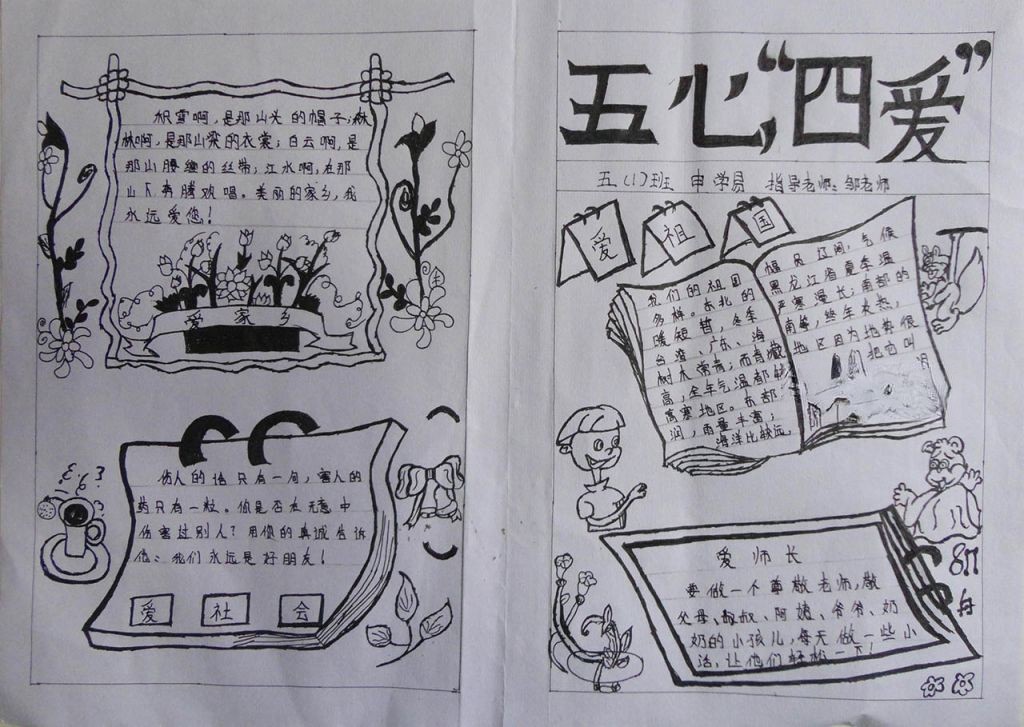 五心，“四爱”
五(1)班 申学员 指导老师：邹老师
爱 祖 国
我们的祖国
多样。东北的
暖短暂，冬季
台湾、广东、海
树木常青；而青藏
高，全年气温都较
高寒地区。东部
润，雨量丰富；
海洋比较远，
幅员辽阔，气候
黑龙江省夏季温
严寒漫长；南部的
南等，终年炎热，
地区因为地势很
把它叫
爱师长
要做一个尊敬老师，敬
父母、叔叔、阿姨、爷爷、奶
奶的小孩儿，每天做一些小
活，让他们轻松一下！
积雪啊，是那山头的帽子；林
林啊，是那山梁的衣裳；白云啊，是
那山腰缠的丝带；江水啊，在那
山下奔腾欢唱。美丽的家乡，我
永远爱您！
爱家乡
伤人的话只有一句，害人的
药只有一粒。你是否在无意中
伤害过别人？用你的真诚告诉
他：我们永远是好朋友！
爱 社 会